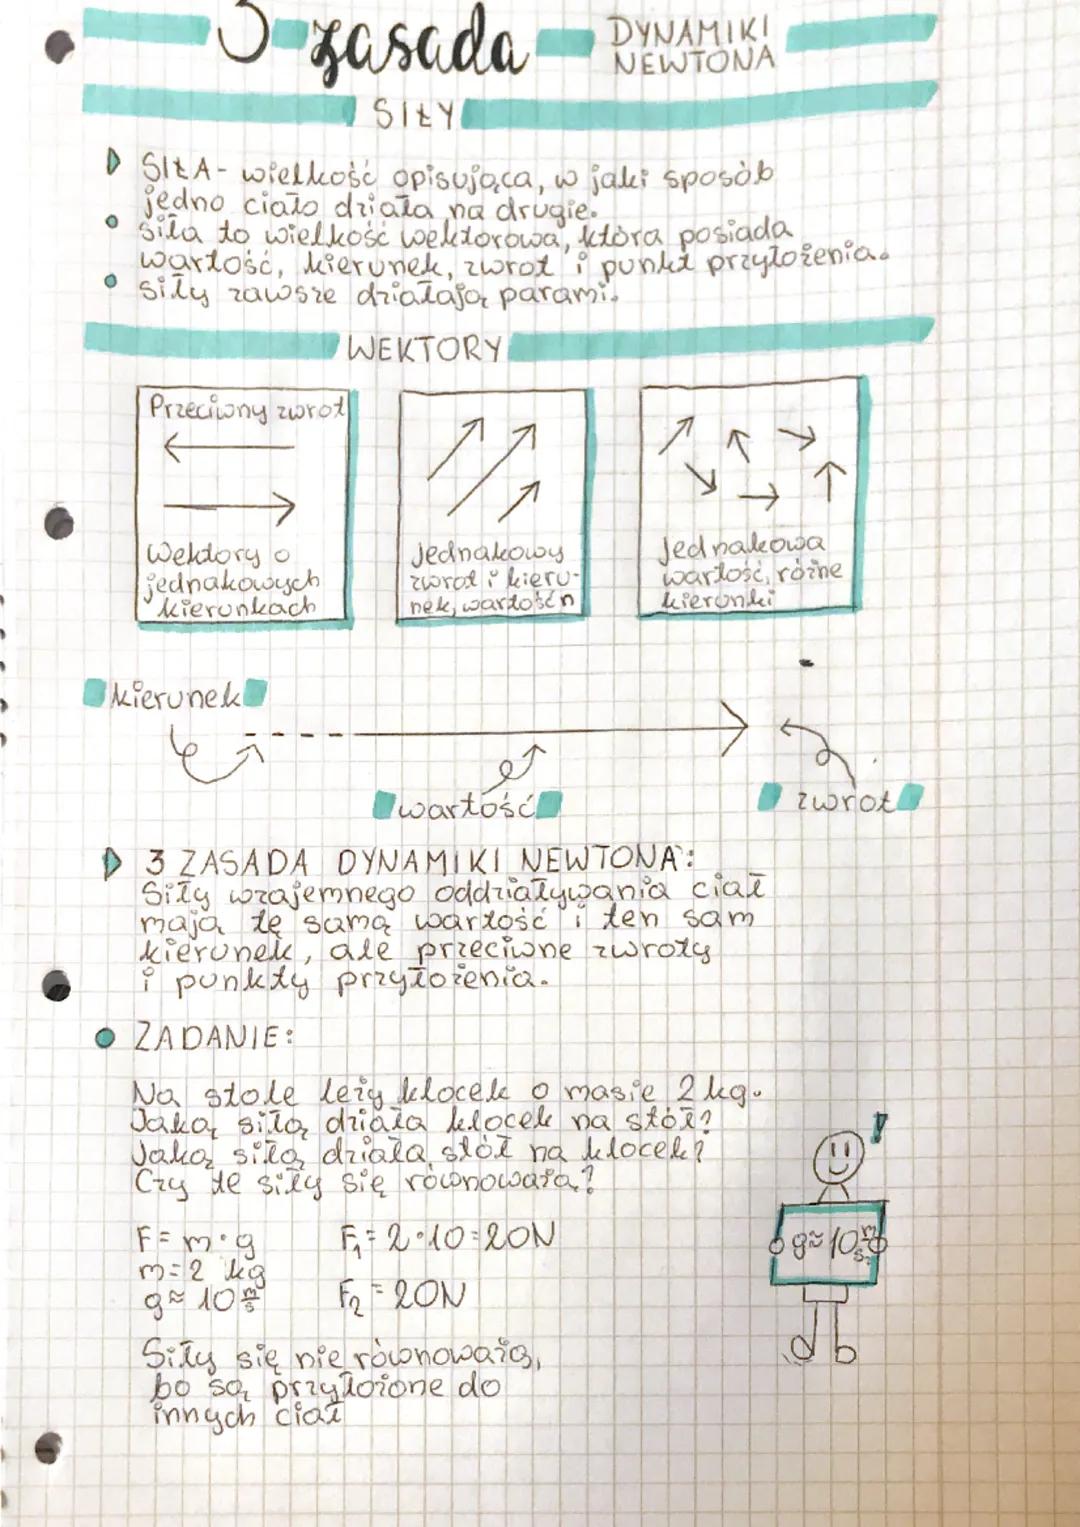 3 zasada DYNAMIKI NEWTONA
SIŁY
SIŁA - wielkość opisująca, w jaki sposób
jedno ciało działa na drugie.
siła to wielkość wektorowa, która posiada
wartość, kierunek, zwrot i punkt przyłożenia.
siły zawsze działają parami.
WEKTORY
Przeciwny zwrot
Wektory o
jednakowych
kierunkach
jednakowy
zwrot i kieru-
nek, wartość n
jednakowa
wartość, różne
kierunki
kierunek
wartość
zwrot
3 ZASADA DYNAMIKI NEWTONA:
Siły wzajemnego oddziaływania ciał
mają tę samą wartość i ten sam
kierunek, ale przeciwne zwroty
i punkty przyłożenia.
ZADANIE:
Na stole leży klocek o masie 2 kg.
Jaką siłą działa klocek na stół?
Jaką siłą działa stół na klocek?
Czy te siły się równoważą?
F = m · g
m = 2 kg
g ≈ 10 m/s
F₁ = 2 · 10 = 20N
F₂ = 20N
g ≈ 10 m/s²
Siły się nie równoważą,
bo są przyłożone do
innych ciał